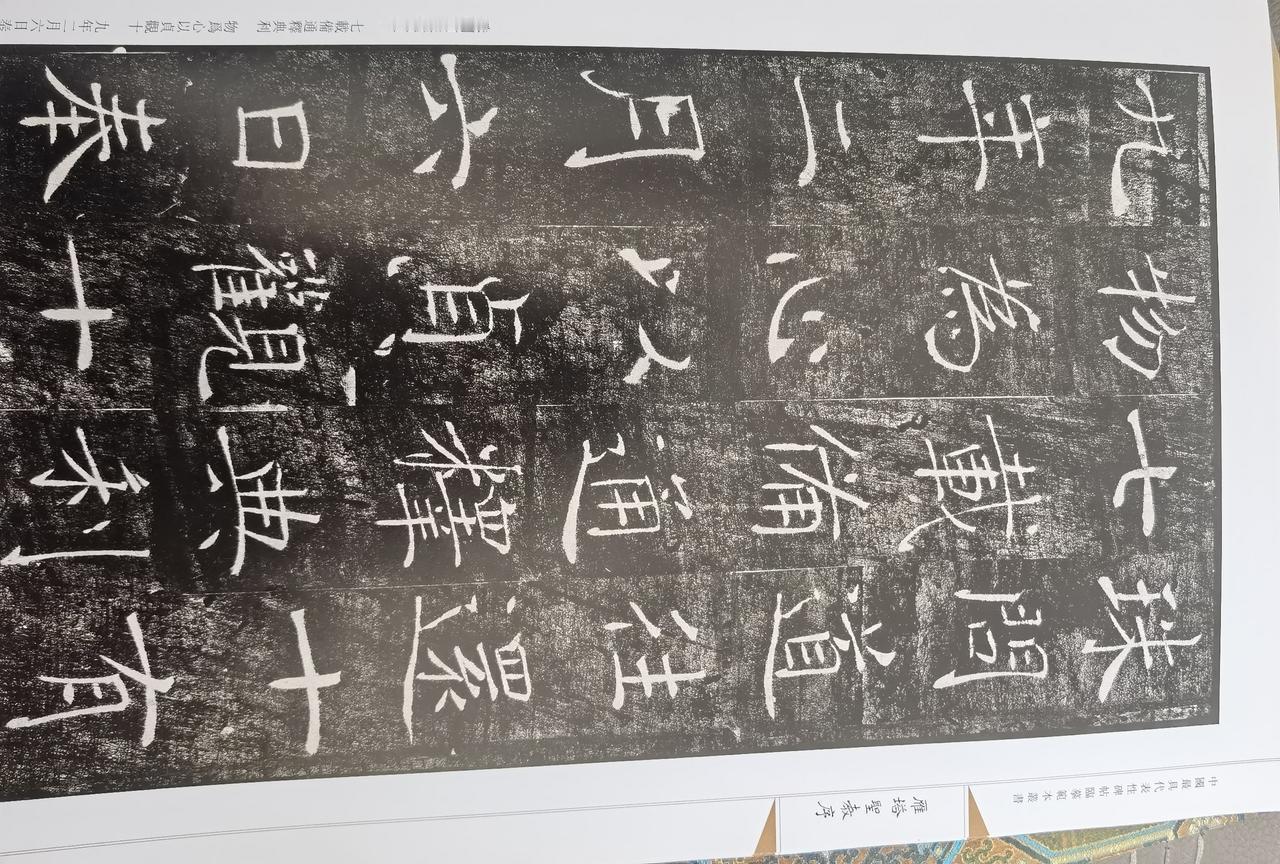 珠問道往還十有
七載備通釋典利
物爲心以貞觀十
九年二月六日奉
七載備通釋典利　物爲心以貞觀十　九年二月六日奉
中國最具代表性碑帖臨摹範本叢書
雁塔聖教序